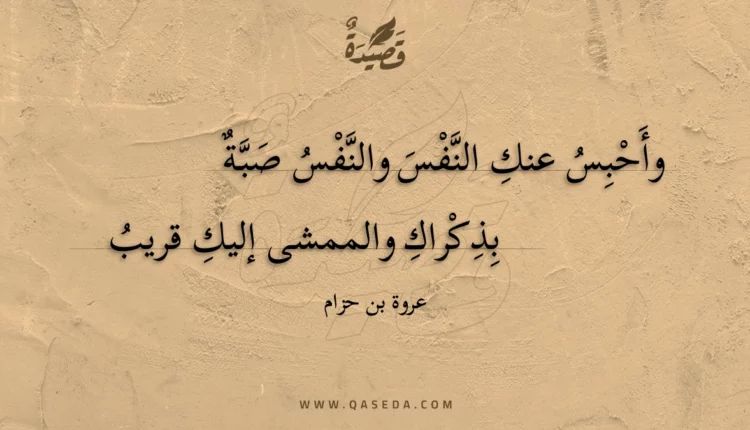 قَصِيدَةٌ
وأَحْبِسُ عنكِ النَّفْسَ والنَّفْسُ صَبَّةٌ
بِذِكْراكِ والممشى إليكِ قريبُ
عروة بن حزام
WWW.QASEDA.COM